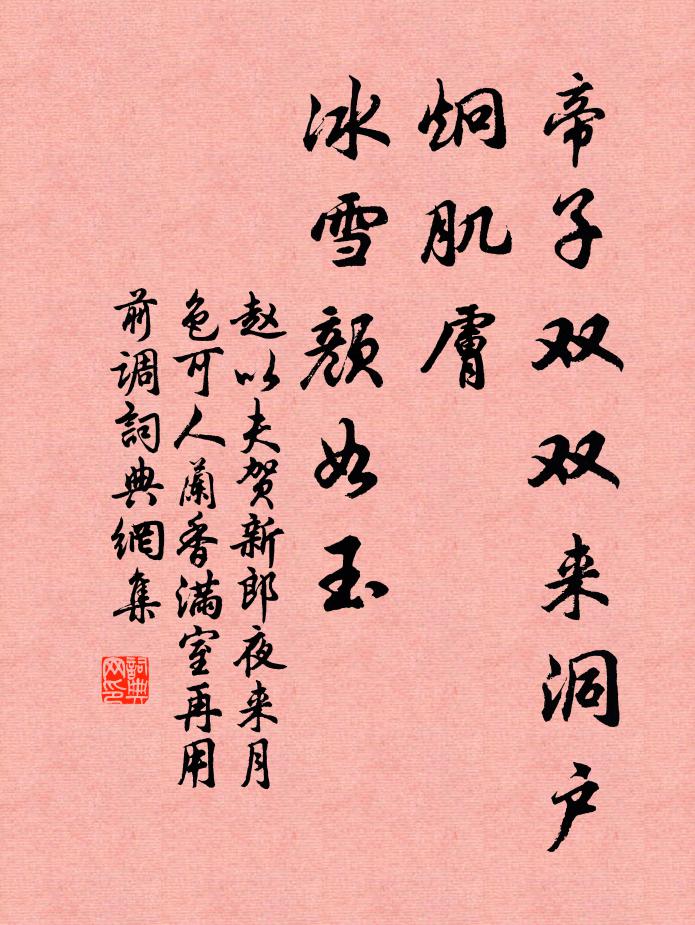 帝子双双来洞户
炯肌膚
冰雪颜如玉
赵以夫贺新郎夜来月
色可人蘭香满室再用
前调詞典網集
詞典網印